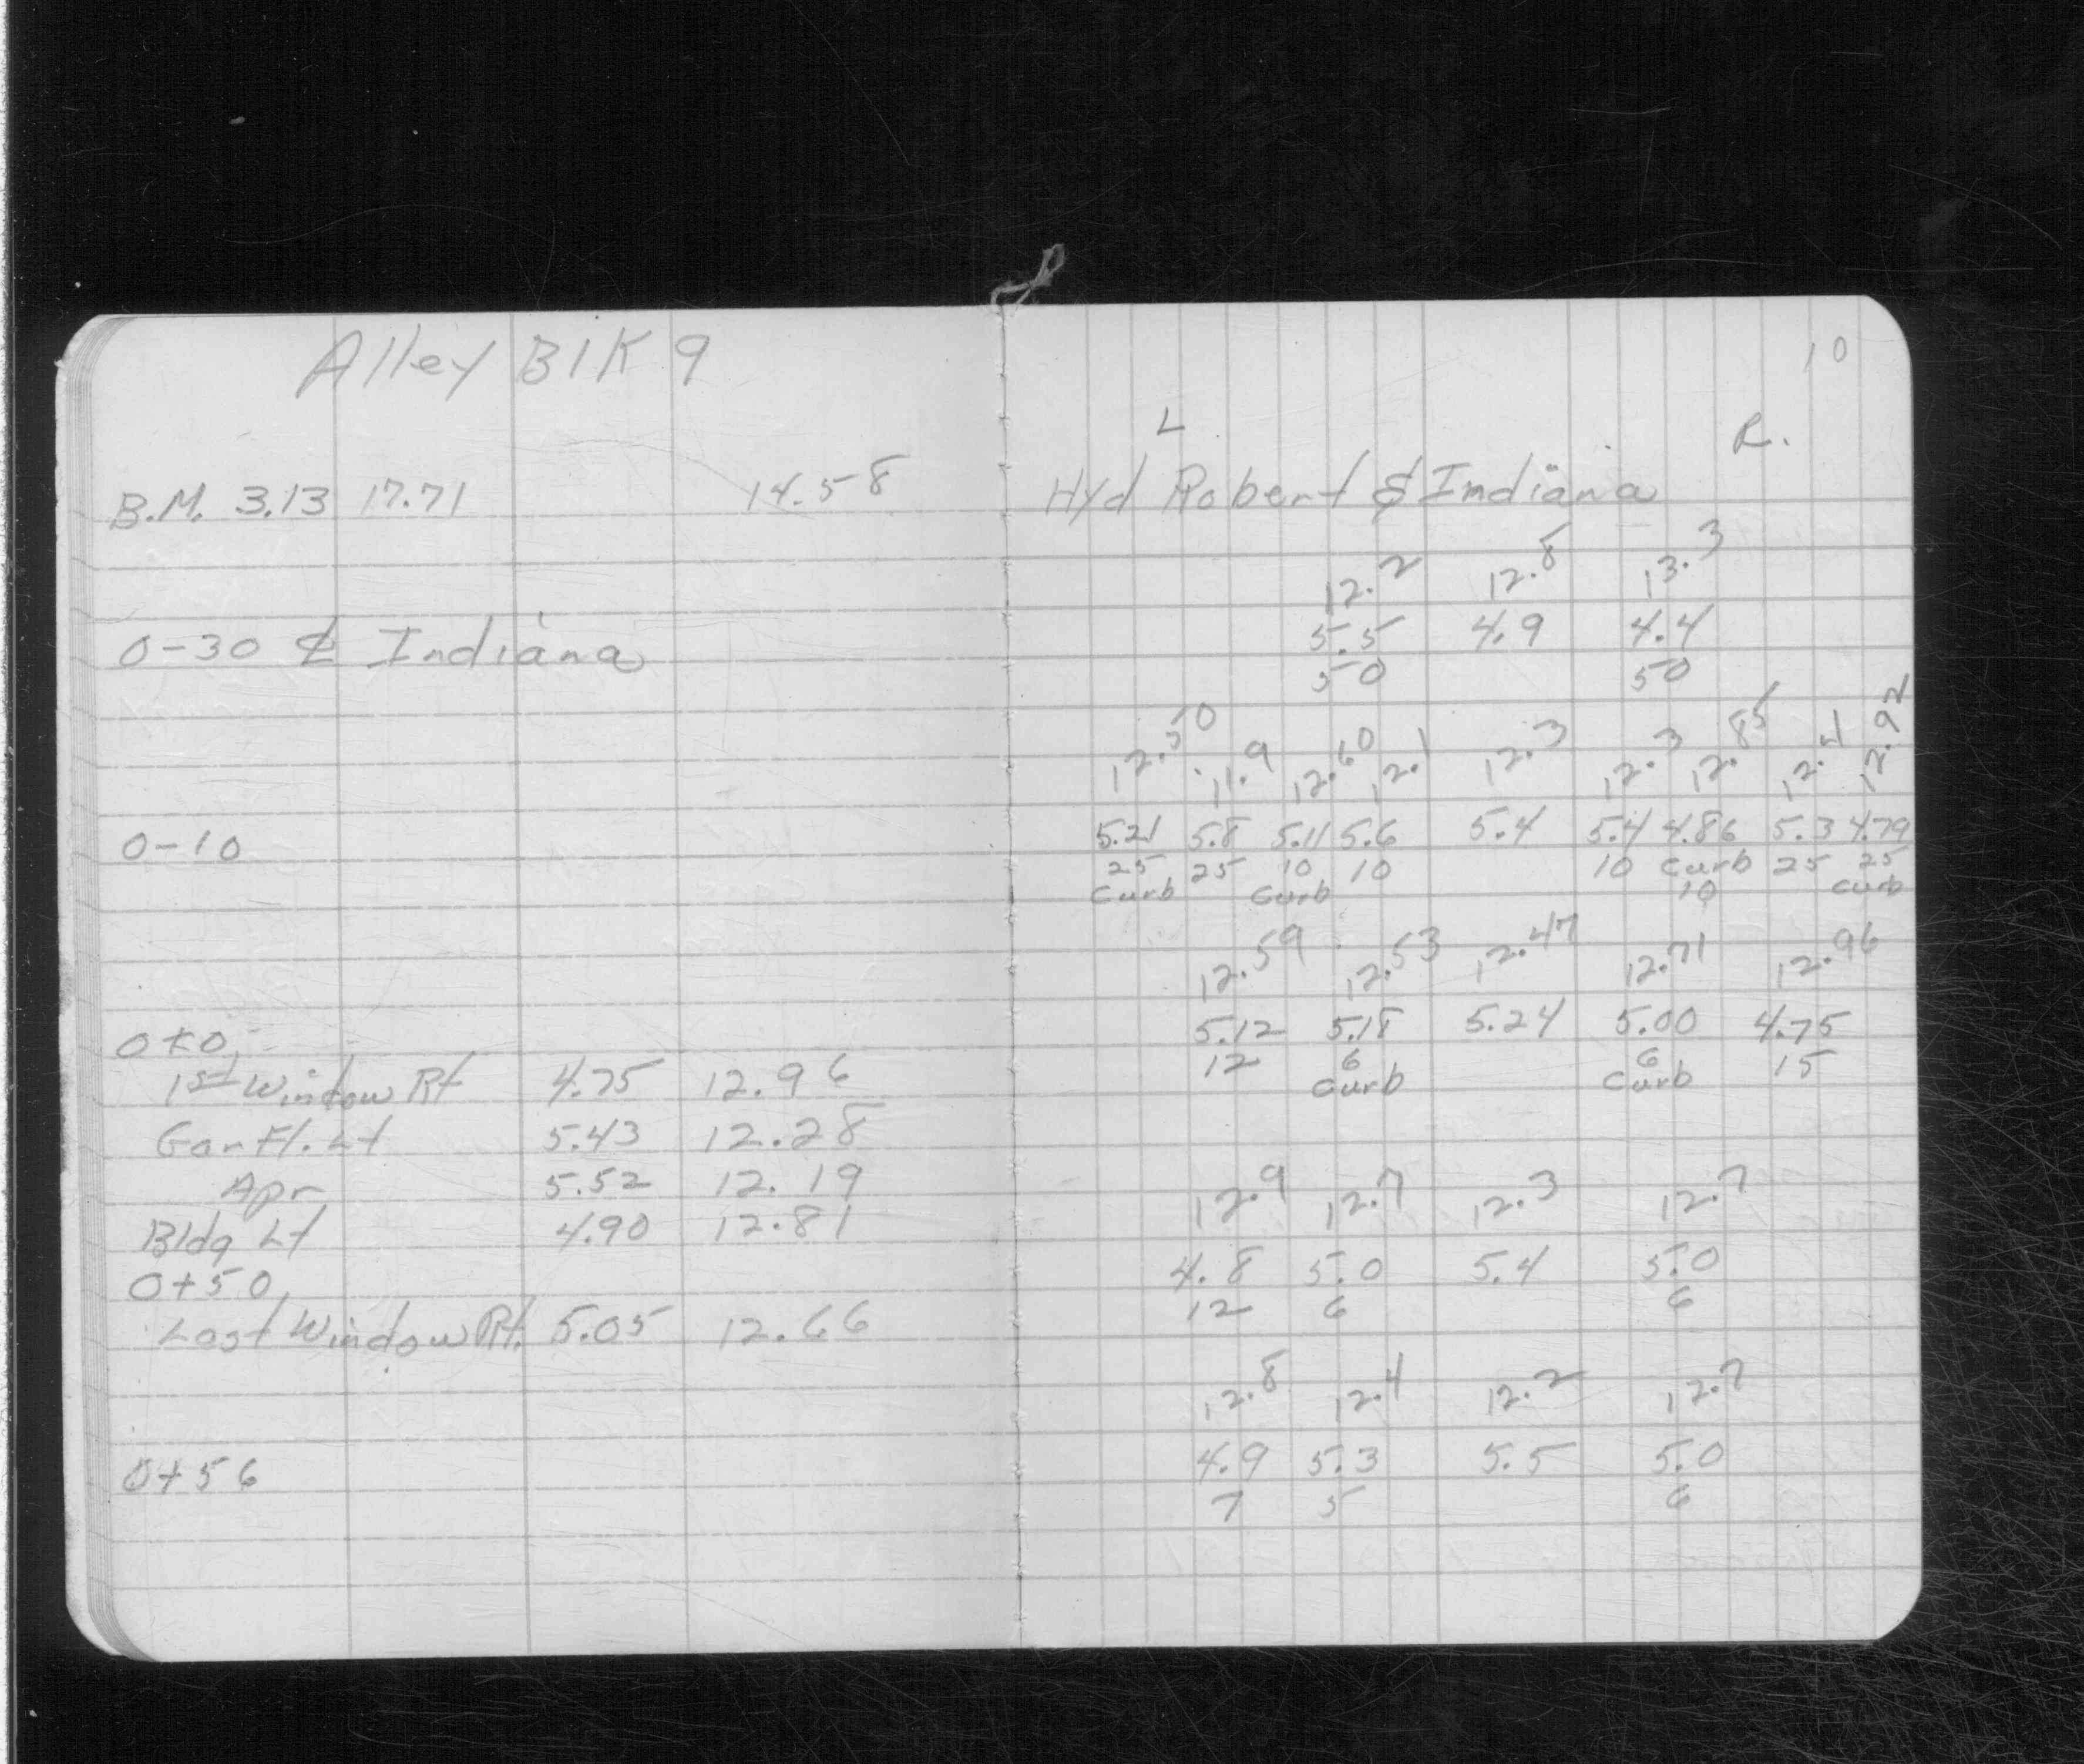 Alley Blk 9
B.M. 3.13 17.71 14.58
0-30 ℄ Indiana
0-10
0+0
1st Window Rt 4.75 12.96
Gar Fl. Lt 5.43 12.28
Apr 5.52 12.19
Bldg Lt 4.90 12.81
0+50
Last Window Rt. 5.05 12.66
0+56
10
L R.
Hyd Robert & Indiana
12.2 12.8 13.3
5.5 4.9 4.4
50 50
12.50 11.9 12.60 12.1 12.3 12.3 12.85 12.4 12.92
5.21 5.8 5.11 5.6 5.4 5.4 4.86 5.3 4.79
25 25 10 10 10 curb 25 25
curb curb 10 curb
12.59 12.53 12.47 12.71 12.96
5.12 5.18 5.24 5.00 4.75
12 6 6 15
curb curb
12.9 12.7 12.3 12.7
4.8 5.0 5.4 5.0
12 6 6
12.8 12.4 12.2 12.7
4.9 5.3 5.5 5.0
7 5 6